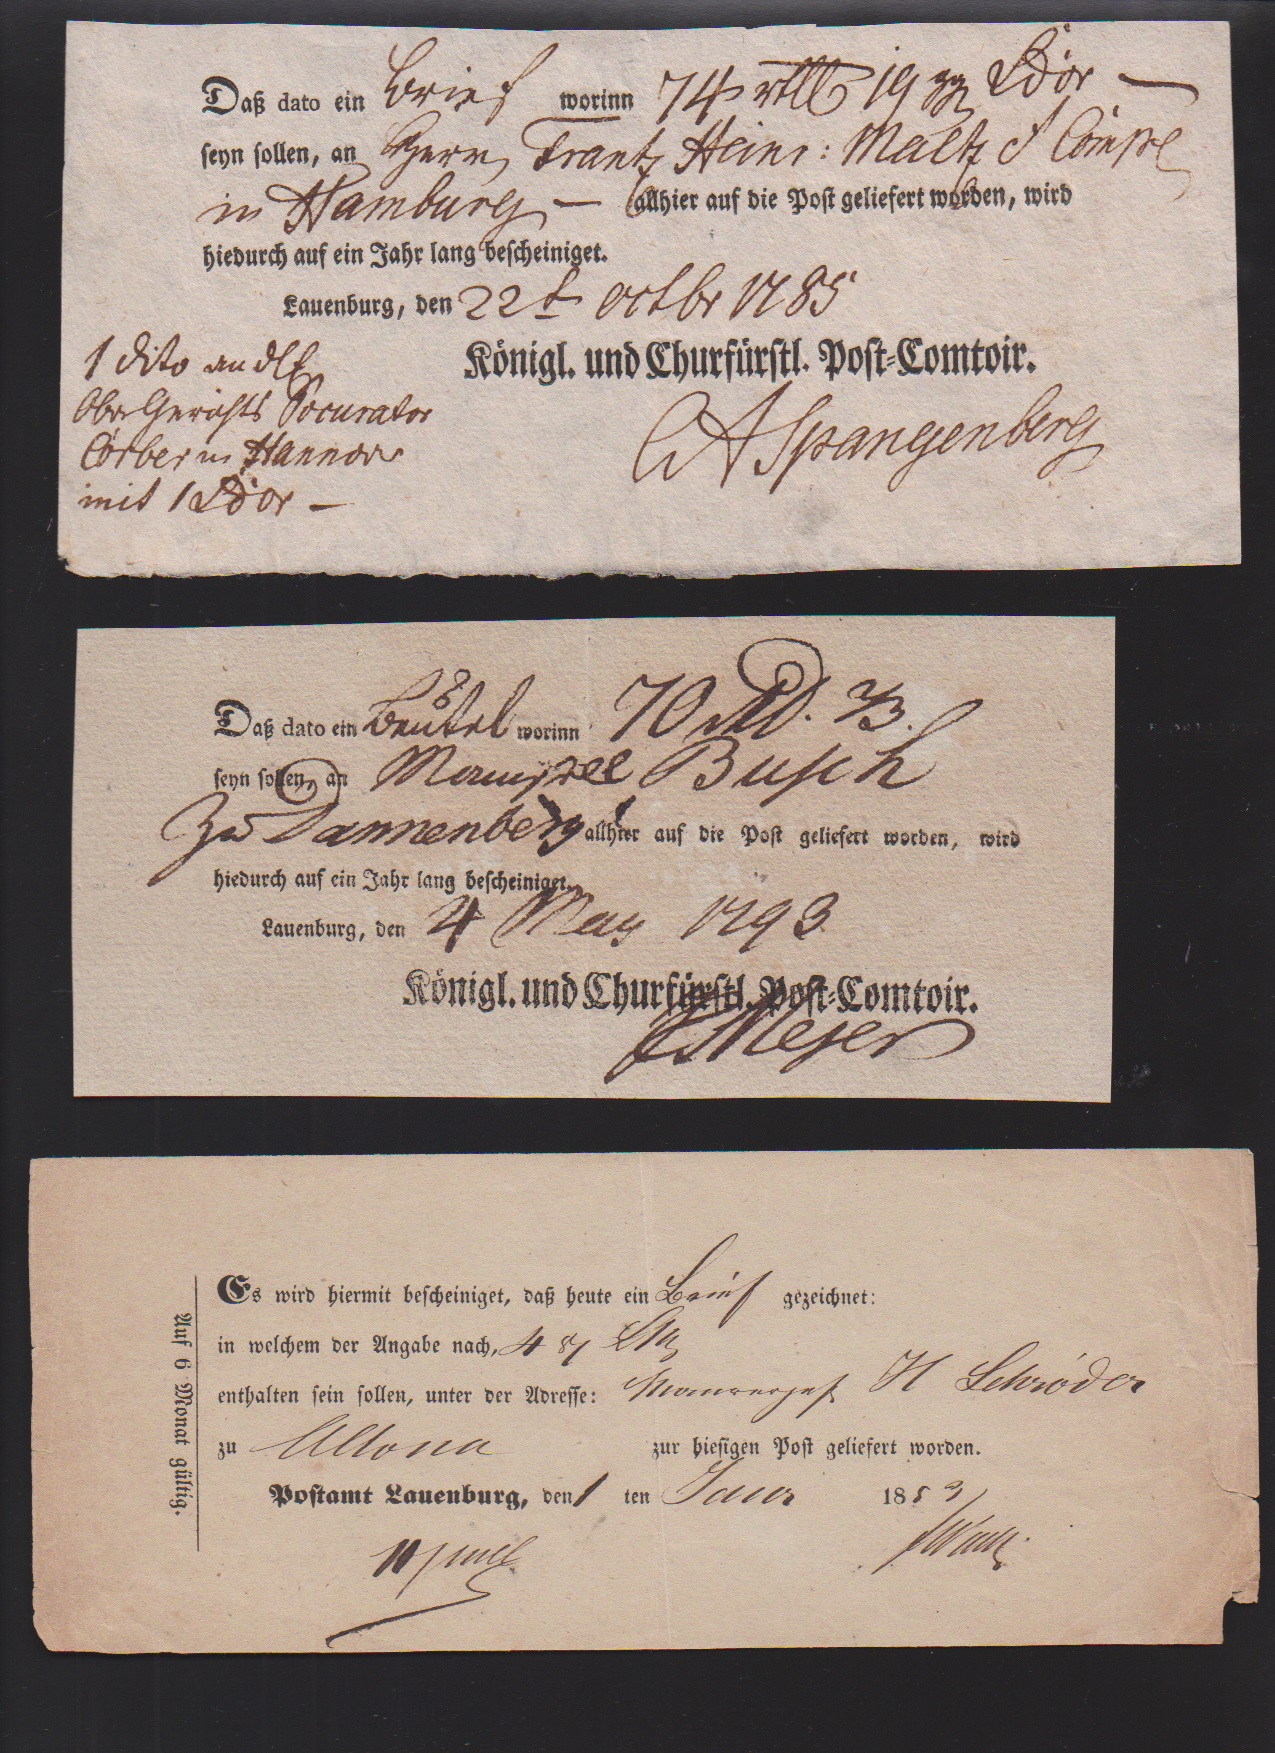 Daß dato ein Brief worinn 74 rthlr 19 ggr Ldòr —
seyn sollen, an Herrn Frantz Heinr: Maltz & Comp
in Hamburg — allhier auf die Post geliefert worden, wird
hiedurch auf ein Jahr lang bescheiniget.
Lauenburg, den 22t octbr 1785
Königl. und Churfürstl. Post-Comtoir.
CA Spangenberg
1 dito an
Ober Gerichts Procurator
Cörber in Hannover
mit 1 Ldor —
Daß dato ein Beutel worinn 70 2/3.
seyn sollen, an Mamsell Busch
Zu Dannenberg allhier auf die Post geliefert worden, wird
hiedurch auf ein Jahr lang bescheiniget.
Lauenburg, den 4 May 1793
Königl. und Churfürstl. Post-Comtoir.
Meyer
Auf 6 Monat gültig.
Es wird hiermit bescheiniget, daß heute ein Brief gezeichnet:
in welchem der Angabe nach, 4
enthalten sein sollen, unter der Adresse: H Schröder
zu Altona zur hiesigen Post geliefert worden.
Postamt Lauenburg, den 1 ten Januar 1853